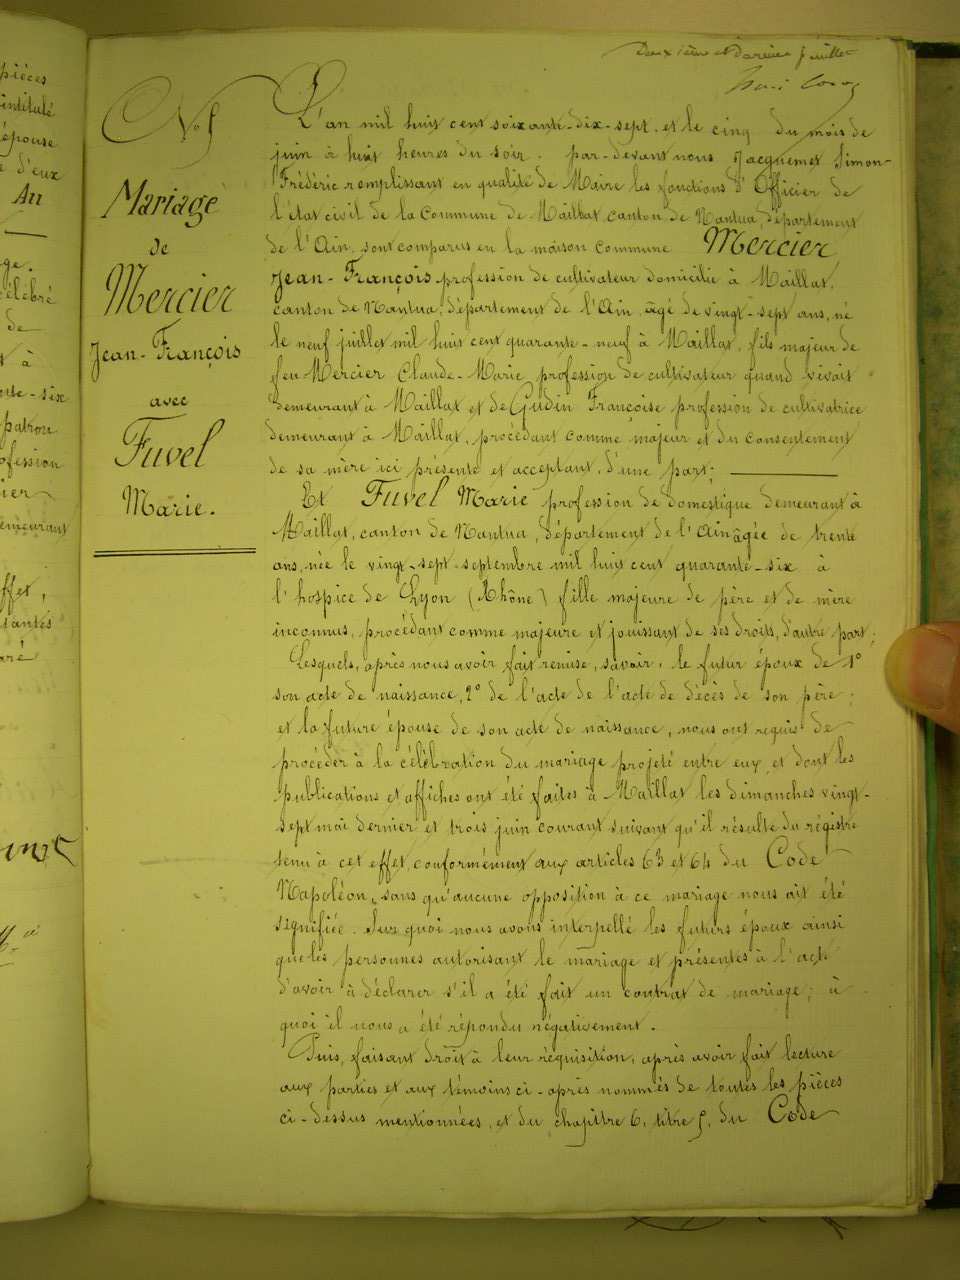 pièces
intitulé
épouse
d'eux
Au
ge.
célébré
de
à
six
patron
ofession
ier
demeurant
effet,
Deuxième et dernier feuillet
N° 5
Mariage
de
Mercier
Jean-François
avec
Fuvel
Marie.
L'an mil huit cent soixante-dix-sept et le cinq du mois de
juin à huit heures du soir. par-devant nous Jacquemet Simon-
Frédéric remplissant en qualité de Maire les fonctions d'Officier de
l'état civil de la Commune de Maillat canton de Nantua, département
de l'Ain, sont comparus en la maison commune Mercier
Jean-François profession de cultivateur domicilié à Maillat,
canton de Nantua, département de l'Ain, âgé de vingt-sept ans, né
le neuf juillet mil huit cent quarante-neuf à Maillat, fils majeur de
feu Mercier Claude-Marie profession de cultivateur quand vivait
demeurant à Maillat et de Gudin Françoise profession de cultivatrice
demeurant à Maillat, procédant comme majeur et du consentement
de sa mère ici présente et acceptant, d'une part;
Et Fuvel Marie profession de domestique demeurant à
Maillat, canton de Nantua, département de l'Ain âgée de trente
ans, née le vingt-sept septembre mil huit cent quarante-six à
l'hospice de Lyon (Rhône) fille majeure de père et de mère
inconnus, procédant comme majeure et jouissant de ses droits, d'autre part;
Lesquels, après nous avoir fait remise, savoir: le futur époux de 1°
son acte de naissance, 2° de l'acte de l'acte de décès de son père;
et la future épouse de son acte de naissance, nous ont requis de
procéder à la célébration du mariage projeté entre eux et dont les
publications et affiches ont été faites à Maillat les dimanches vingt-
sept mai dernier et trois juin courant suivant qu'il résulte du régistre
tenu à cet effet, conformément aux articles 63 et 64 du Code
Napoléon, sans qu'aucune opposition à ce mariage nous ait été
signifiée. Sur quoi nous avons interpellé les futurs époux ainsi
que les personnes autorisant le mariage et présentes à l'acte
d'avoir à déclarer s'il a été fait un contrat de mariage; à
quoi il nous a été répondu négativement.
Puis, faisant droit à leur réquisition, après avoir fait lecture
aux parties et aux témoins ci-après nommés de toutes les pièces
ci-dessus mentionnées, et du chapitre 6, titre 5, du Code